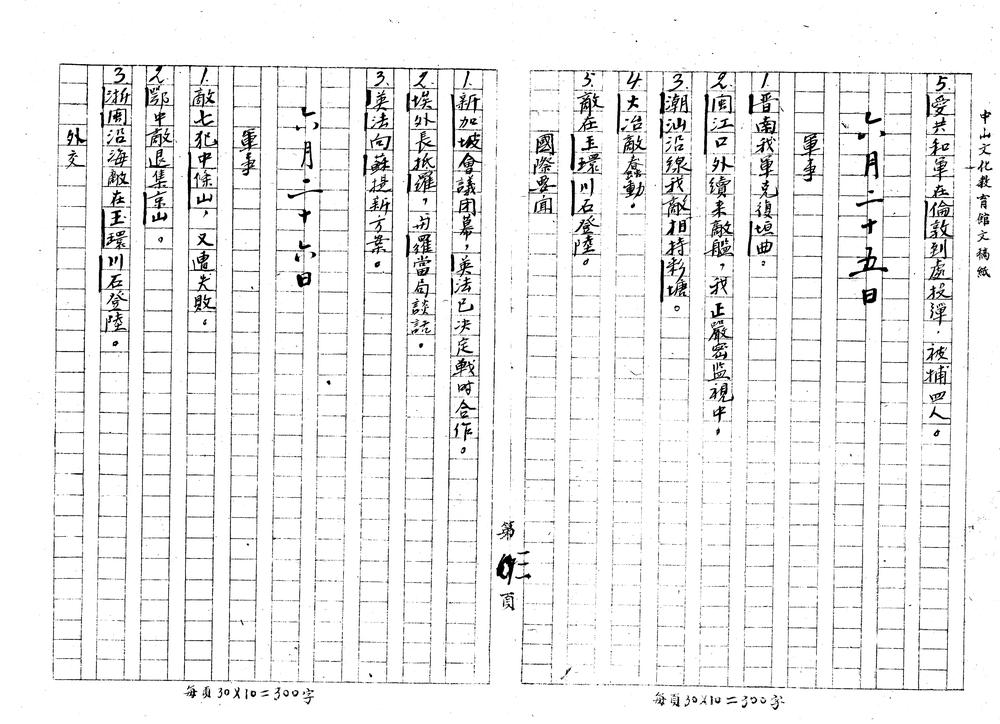 中山文化教育館文稿紙
5.愛共和軍在倫敦到處投彈，被捕四人。
六月二十五日
軍事
1.晋南我軍克復垣曲。
2.閩江口外續来敵艦，我正嚴密监視中。
3.潮汕沿線我敵相持彩塘。
4.大冶敵蠢動。
5.敵在玉環川石登陸。
國際要聞
第頁
1.新加坡會議闭幕，英法已决定戰时合作。
2.埃外長抵羅，与羅當局談話。
3.英法向蘇提新方案。
六月二十六日
軍事
1.敵七犯中條山，又遭失敗。
2.鄂中敵退集京山。
3.浙閩沿海敵在玉環川石登陸。
外交
每頁30×10=300字
每頁30×10=300字